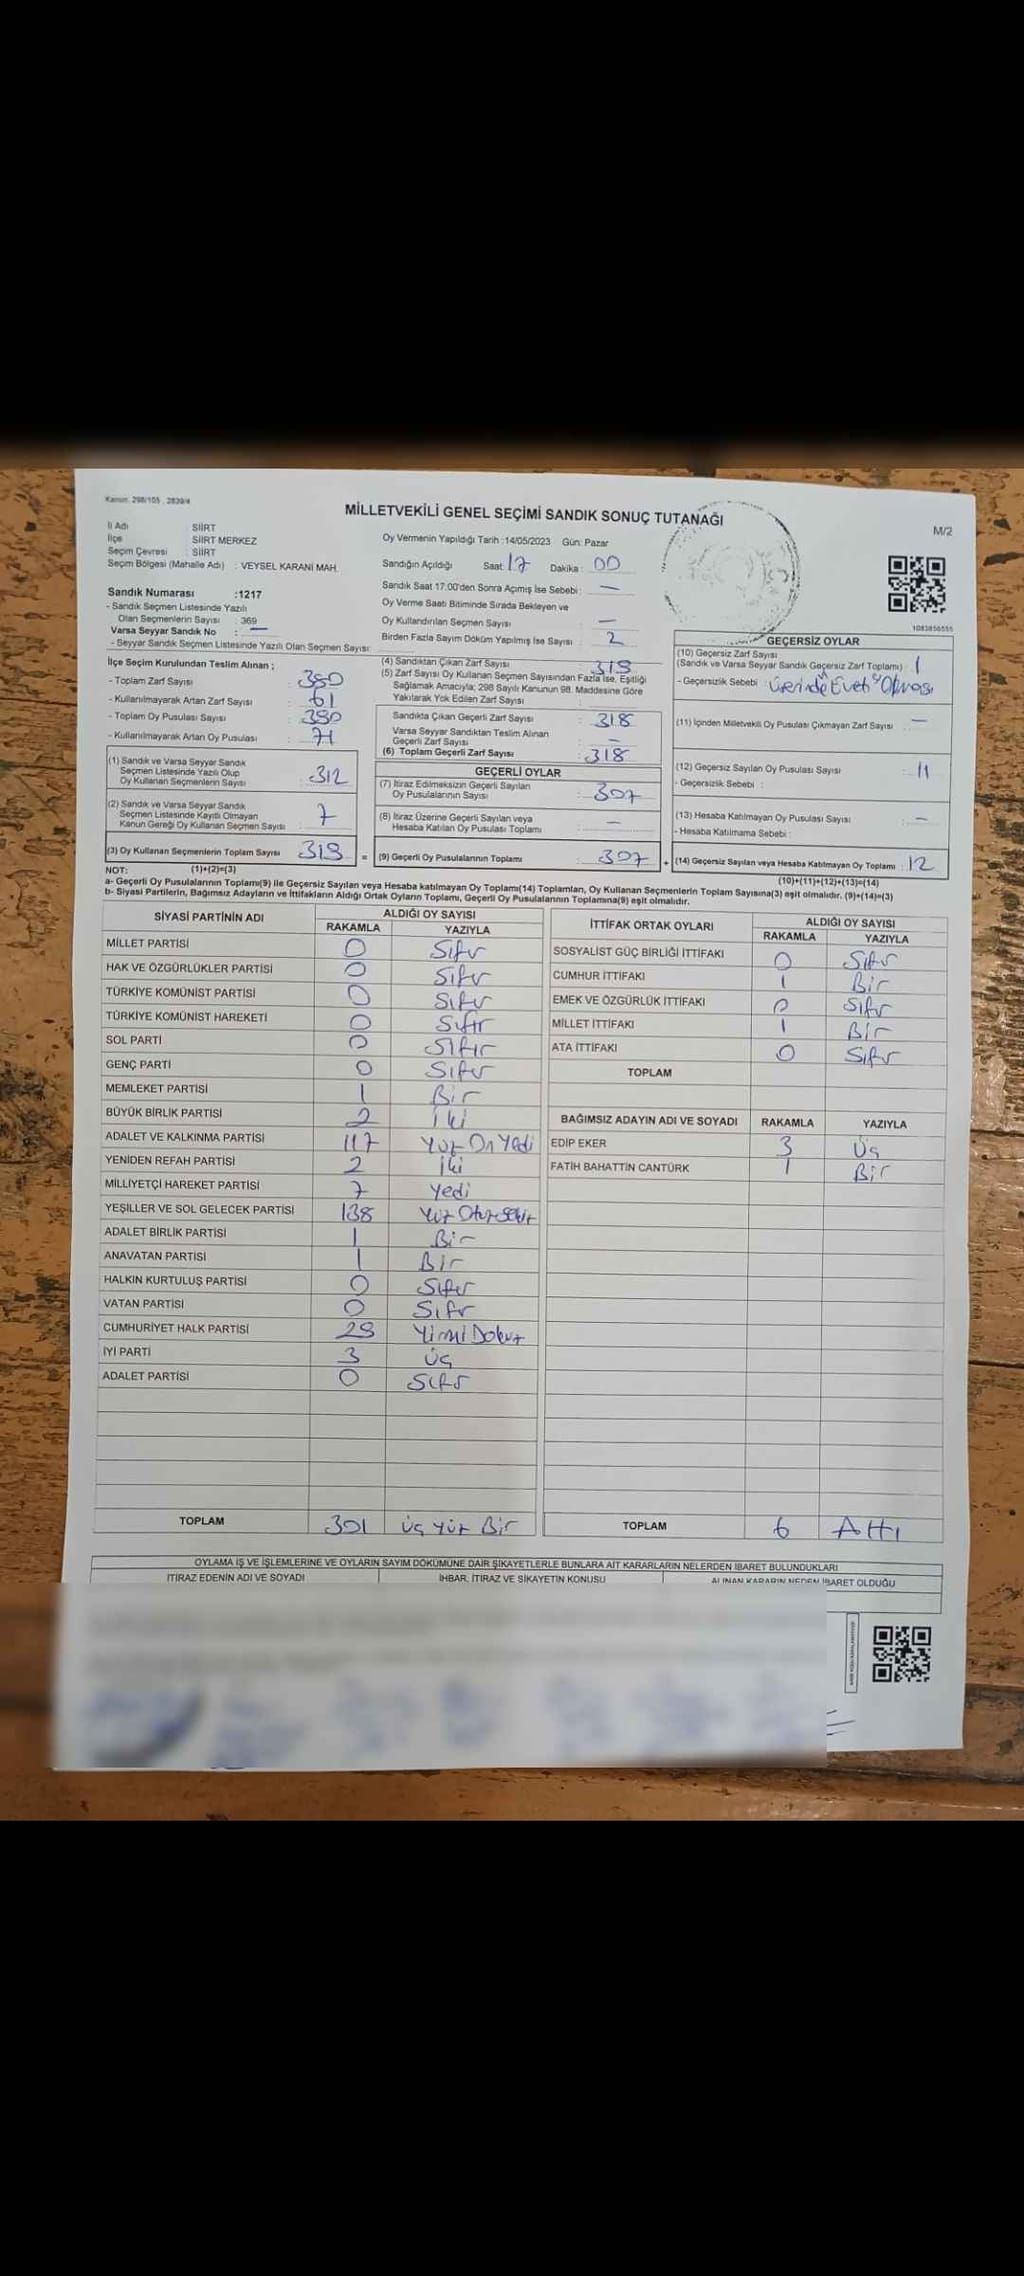 Kanun. 298/105 , 2839/4
MİLLETVEKİLİ GENEL SEÇİMİ SANDIK SONUÇ TUTANAĞI
M/2
İl Adı : SİİRT
İlçe : SİİRT MERKEZ
Seçim Çevresi : SİİRT
Seçim Bölgesi (Mahalle Adı) : VEYSEL KARANİ MAH.
Oy Vermenin Yapıldığı Tarih :14/05/2023 Gün: Pazar
Sandığın Açıldığı Saat: 17 Dakika : 00
Sandık Saat 17:00'den Sonra Açımış İse Sebebi : —
Oy Verme Saati Bitiminde Sırada Bekleyen ve
Oy Kullandırılan Seçmen Sayısı : —
Birden Fazla Sayım Döküm Yapılmış İse Sayısı : 2
1083856555
Sandık Numarası :1217
- Sandık Seçmen Listesinde Yazılı
Olan Seçmenlerin Sayısı : 369
Varsa Seyyar Sandık No : —
- Seyyar Sandık Seçmen Listesinde Yazılı Olan Seçmen Sayısı:
İlçe Seçim Kurulundan Teslim Alınan ;
- Toplam Zarf Sayısı : 380
- Kullanılmayarak Artan Zarf Sayısı : 61
- Toplam Oy Pusulası Sayısı : 390
- Kullanılmayarak Artan Oy Pusulası : 71
(1) Sandık ve Varsa Seyyar Sandık
Seçmen Listesinde Yazılı Olup
Oy Kullanan Seçmenlerin Sayısı : 312
(2) Sandık ve Varsa Seyyar Sandık
Seçmen Listesinde Kayıtlı Olmayan
Kanun Gereği Oy Kullanan Seçmen Sayısı : 7
(3) Oy Kullanan Seçmenlerin Toplam Sayısı 319
(4) Sandıktan Çıkan Zarf Sayısı : 319
(5) Zarf Sayısı Oy Kullanan Seçmen Sayısından Fazla İse, Eşitliği
Sağlamak Amacıyla; 298 Sayılı Kanunun 98. Maddesine Göre
Yakılarak Yok Edilen Zarf Sayısı :
Sandıkta Çıkan Geçerli Zarf Sayısı : 318
Varsa Seyyar Sandıktan Teslim Alınan
Geçerli Zarf Sayısı : —
(6) Toplam Geçerli Zarf Sayısı : 318
GEÇERLİ OYLAR
(7) İtiraz Edilmeksizin Geçerli Sayılan
Oy Pusulalarının Sayısı : 307
(8) İtiraz Üzerine Geçerli Sayılan veya
Hesaba Katılan Oy Pusulası Toplamı : —
= (9) Geçerli Oy Pusulalarının Toplamı : 307
GEÇERSİZ OYLAR
(10) Geçersiz Zarf Sayısı
(Sandık ve Varsa Seyyar Sandık Geçersiz Zarf Toplamı) : 1
- Geçersizlik Sebebi : üzerinde Evet Olması
(11) İçinden Milletvekili Oy Pusulası Çıkmayan Zarf Sayısı : —
(12) Geçersiz Sayılan Oy Pusulası Sayısı : 11
- Geçersizlik Sebebi :
(13) Hesaba Katılmayan Oy Pusulası Sayısı : —
- Hesaba Katılmama Sebebi :
+ (14) Geçersiz Sayılan veya Hesaba Katılmayan Oy Toplamı : 12
NOT: (1)+(2)=(3)
(10)+(11)+(12)+(13)=(14)
a- Geçerli Oy Pusulalarının Toplamı(9) ile Geçersiz Sayılan veya Hesaba katılmayan Oy Toplamı(14) Toplamları, Oy Kullanan Seçmenlerin Toplam Sayısına(3) eşit olmalıdır. (9)+(14)=(3)
b- Siyasi Partilerin, Bağımsız Adayların ve İttifakların Aldığı Ortak Oyların Toplamı, Geçerli Oy Pusulalarının Toplamına(9) eşit olmalıdır.
SİYASİ PARTİNİN ADI
ALDIĞI OY SAYISI
RAKAMLA YAZIYLA
MİLLET PARTİSİ 0 Sıfır
HAK VE ÖZGÜRLÜKLER PARTİSİ 0 Sıfır
TÜRKİYE KOMÜNİST PARTİSİ 0 Sıfır
TÜRKİYE KOMÜNİST HAREKETİ 0 Sıfır
SOL PARTİ 0 Sıfır
GENÇ PARTİ 0 Sıfır
MEMLEKET PARTİSİ 1 Bir
BÜYÜK BİRLİK PARTİSİ 2 İki
ADALET VE KALKINMA PARTİSİ 117 Yüz On Yedi
YENİDEN REFAH PARTİSİ 2 İki
MİLLİYETÇİ HAREKET PARTİSİ 7 Yedi
YEŞİLLER VE SOL GELECEK PARTİSİ 138 Yüz Otuz Sekiz
ADALET BİRLİK PARTİSİ 1 Bir
ANAVATAN PARTİSİ 1 Bir
HALKIN KURTULUŞ PARTİSİ 0 Sıfır
VATAN PARTİSİ 0 Sıfır
CUMHURİYET HALK PARTİSİ 29 Yirmi Dokuz
İYİ PARTİ 3 Üç
ADALET PARTİSİ 0 Sıfır
TOPLAM 301 Üç Yüz Bir
İTTİFAK ORTAK OYLARI
ALDIĞI OY SAYISI
RAKAMLA YAZIYLA
SOSYALİST GÜÇ BİRLİĞİ İTTİFAKI 0 Sıfır
CUMHUR İTTİFAKI 1 Bir
EMEK VE ÖZGÜRLÜK İTTİFAKI 0 Sıfır
MİLLET İTTİFAKI 1 Bir
ATA İTTİFAKI 0 Sıfır
TOPLAM
BAĞIMSIZ ADAYIN ADI VE SOYADI RAKAMLA YAZIYLA
EDİP EKER 3 Üç
FATİH BAHATTİN CANTÜRK 1 Bir
TOPLAM 6 Altı
OYLAMA İŞ VE İŞLEMLERİNE VE OYLARIN SAYIM DÖKÜMÜNE DAİR ŞİKAYETLERLE BUNLARA AİT KARARLARIN NELERDEN İBARET BULUNDUKLARI
İTİRAZ EDENİN ADI VE SOYADI
İHBAR, İTİRAZ VE ŞİKAYETİN KONUSU
ALINAN KARARIN NEDEN İBARET OLDUĞU